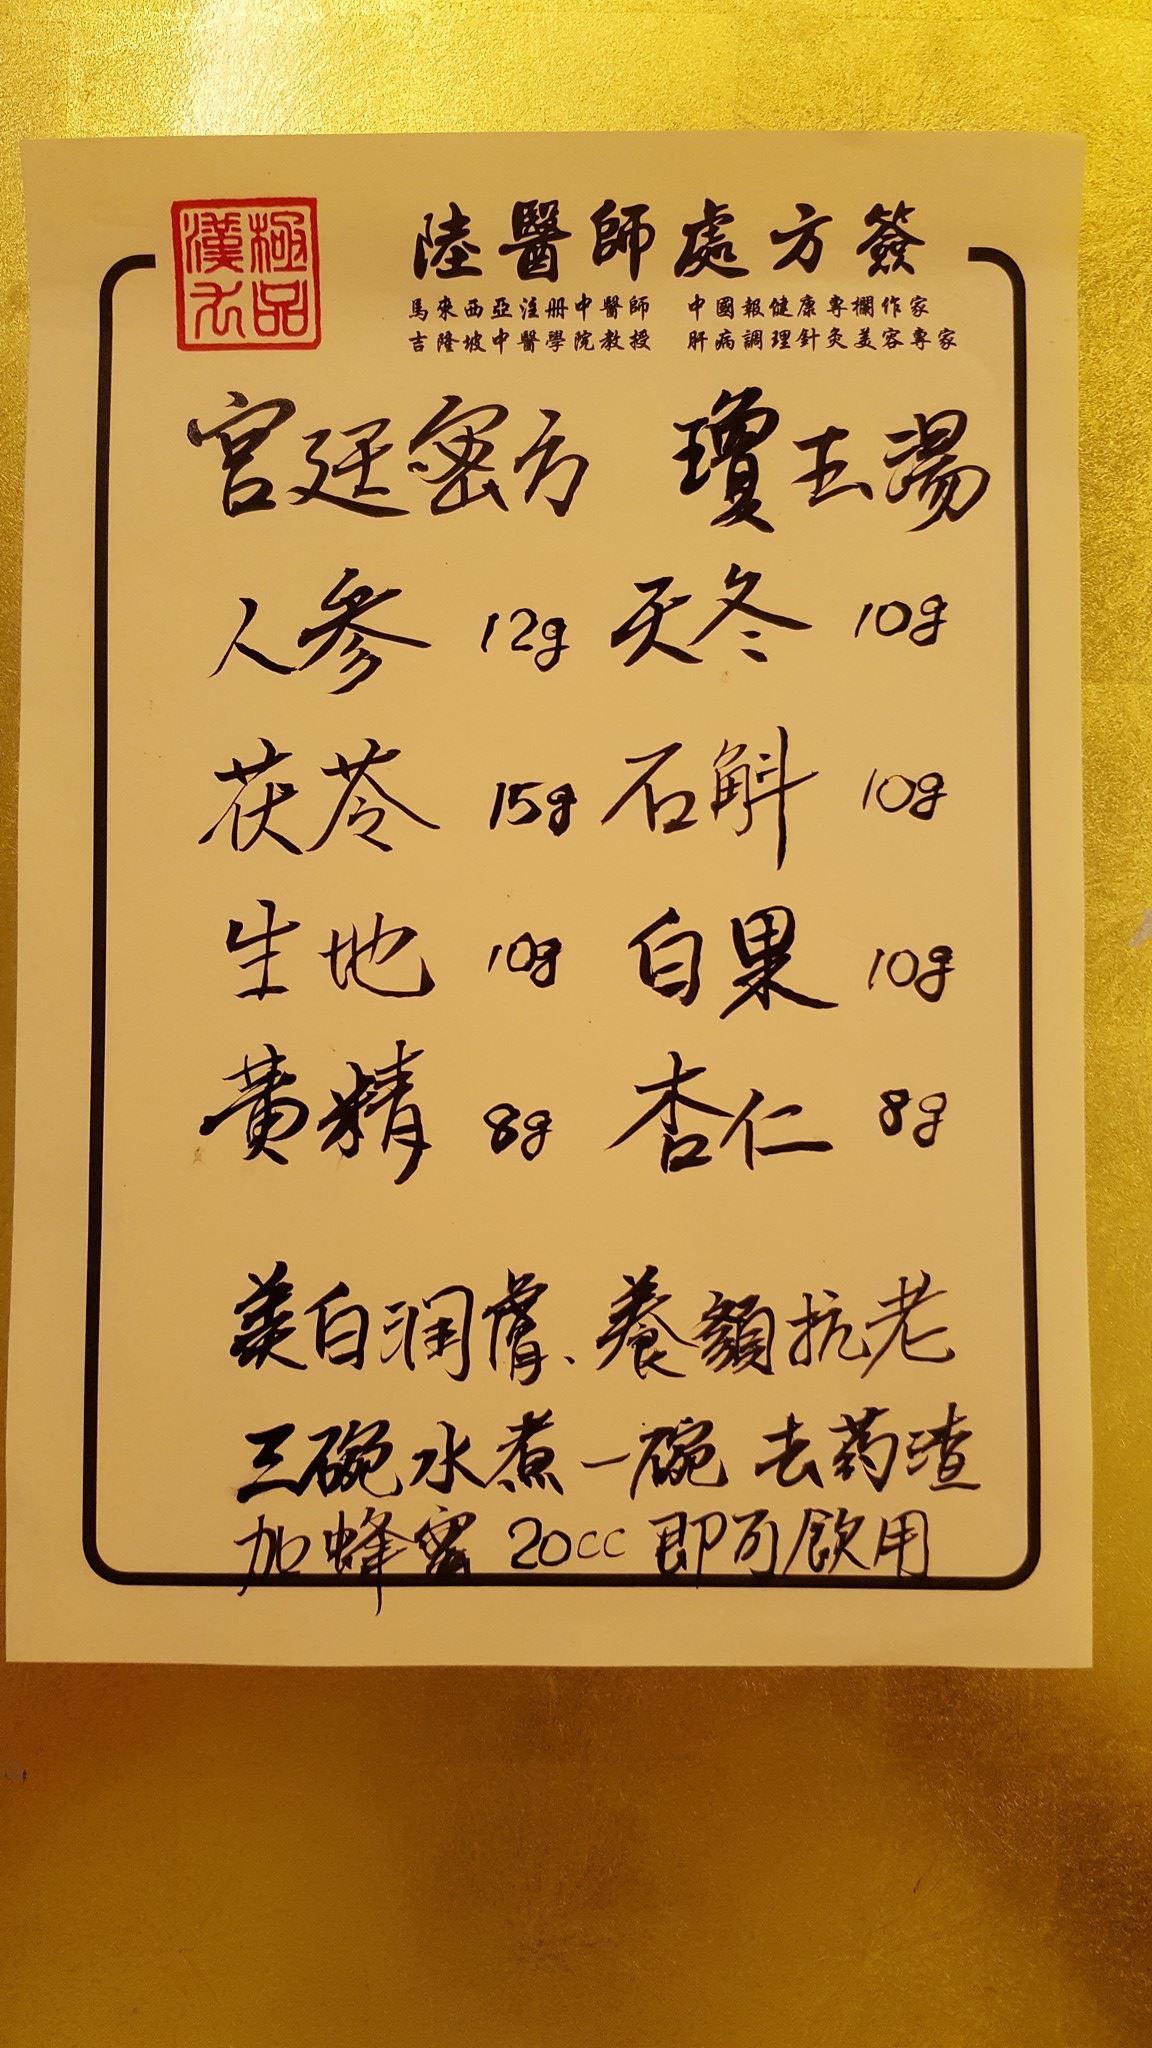 極品
漢方
陸醫師處方簽
馬來西亞注册中醫師 中國報健康專欄作家
吉隆坡中醫學院教授 肝病調理針灸美容專家
宫廷密方 瓊玉湯
人參 12g 天冬 10g
茯苓 15g 石斛 10g
生地 10g 白果 10g
黄精 8g 杏仁 8g
美白润膚、養顏抗老
三碗水煮一碗 去药渣
加蜂蜜 20cc 即可飲用